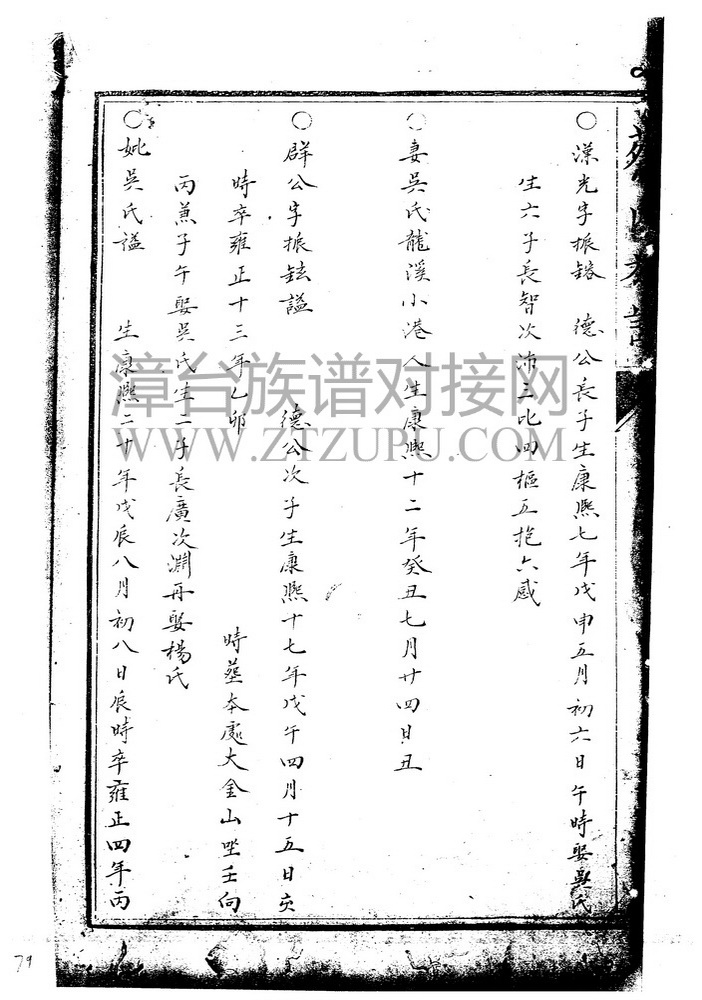 ○漢光字振鎔 德公長子生康熙七年戊申五月初六日午時娶吳氏
生六子長智次沛三比四樞五抱六感
○妻吳氏龍溪小港人生康熙十二年癸丑七月廿四日丑
○群公字振鉉謚 德公次子生康熙十七年戊午四月十五日亥
時卒雍正十三年乙卯 時葬本處大金山坐壬向
丙兼子午娶吳氏生一子長廣次淵再娶楊氏
○妣吳氏謚 生康熙二十年戊辰八月初八日辰時卒雍正四年丙
漳台族谱对接网
WWW.ZTZUPU.COM
79